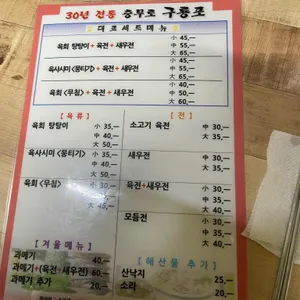 30년 전통 충무로 구룡포
대표세트메뉴
육회 탕탕이+육전+새우전 小 45,— 中 55,— 大 65,—
육사시미<뭉티기>+육전+새우전 小 45,— 中 55,— 大 65,—
육회<무침>+육전+새우전 中 55,— 大 65,—
[육류]
육회 탕탕이 小 35,— 中 40,— 大 50,—
육사시미<뭉티기> 小 35,— 中 40,— 大 50,—
육회<무침> 小 30,— 中 40,— 大 50,—
[전]
소고기 육전 中 30,— 大 40,—
새우전 中 30,— 大 40,—
육전+새우전 中 30,— 大 40,—
모듬전 中 35,— 大 45,—
[겨울메뉴]
과메기 40,—
과메기+(육전+새우전) 60,—
과메기 추가 20,—
[해산물 추가]
산낙지 25,—
소라 20,—